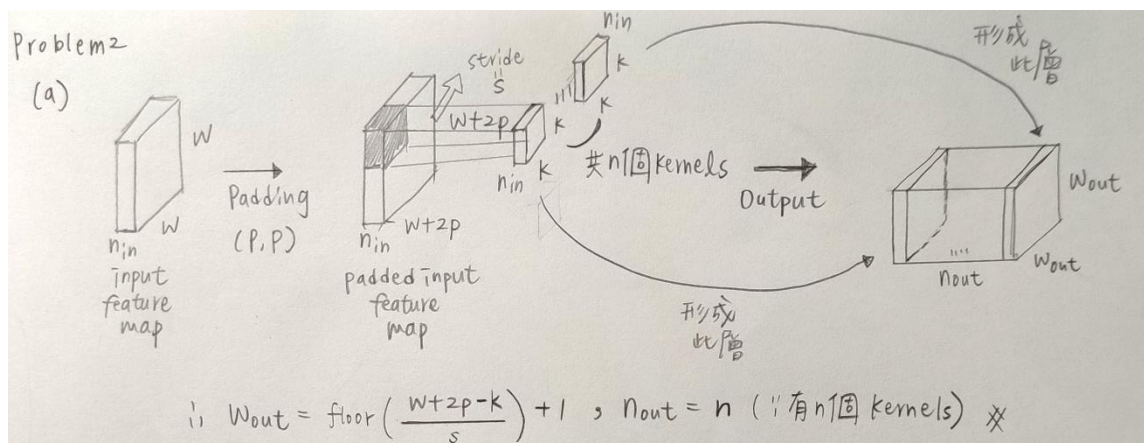 Problem2
(a)
W
W
n_in
input
feature
map
Padding
(P,P)
stride
=
s
W+2p
W+2p
n_in
padded input
feature
map
n_in
K
K
n_in
K
K
共n個kernels
Output
形成
此層
形成
此層
Wout
Wout
....
nout
∴ Wout = floor((W+2p-K)/s) + 1 , nout = n (∵有n個 kernels) ※